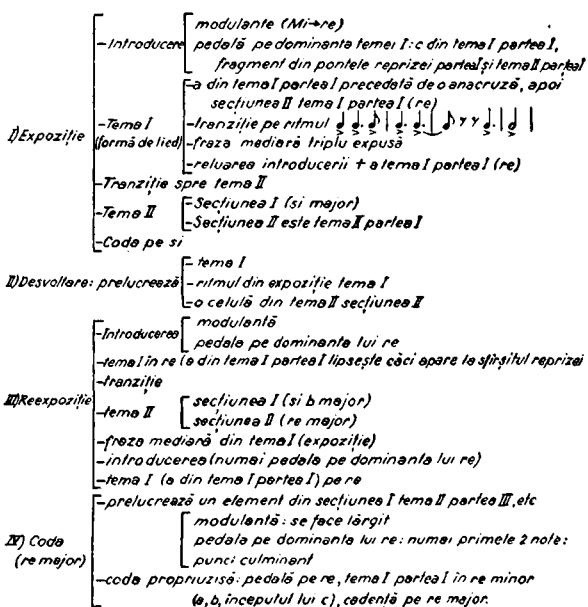 modulante (Mi→re)
-Introducere pedală pe dominanta temei I: c din tema I partea I,
fragment din pontele reprizei partea I și tema II partea I
-a din tema I partea I precedată de o anacruză, apoi
secțiunea II tema I partea I (re)
-Tema I -tranziție pe ritmul
I) Expoziție (formă de lied) -fraza mediară triplu expusă
-reluarea introducerii + a tema I partea I (re)
-Tranziție spre tema II
-Tema II -Secțiunea I (si major)
-Secțiunea II este tema II partea I
-Coda pe si
- tema I
II) Desvoltare: prelucrează -ritmul din expoziție tema I
-o celulă din tema II secțiunea II
-Introducerea modulantă
pedala pe dominanta lui re
-tema I în re (a din tema I partea I lipsește căci apare la sfîrșitul reprizei
-tranziție
III) Reexpoziție -tema II secțiunea I (si b major)
secțiunea II (re major)
-fraza mediară din tema I (expoziție)
-introducerea (numai pedala pe dominanta lui re)
-tema I (a din tema I partea I) pe re
-prelucrează un element din secțiunea I tema II partea III, etc
IV) Coda modulantă: se face lărgit
(re major) pedala pe dominanta lui re: numai primele 2 note:
punct culminant
-coda propriuzisă: pedală pe re, tema I partea I în re minor
(a, b, începutul lui c), cadență pe re major.